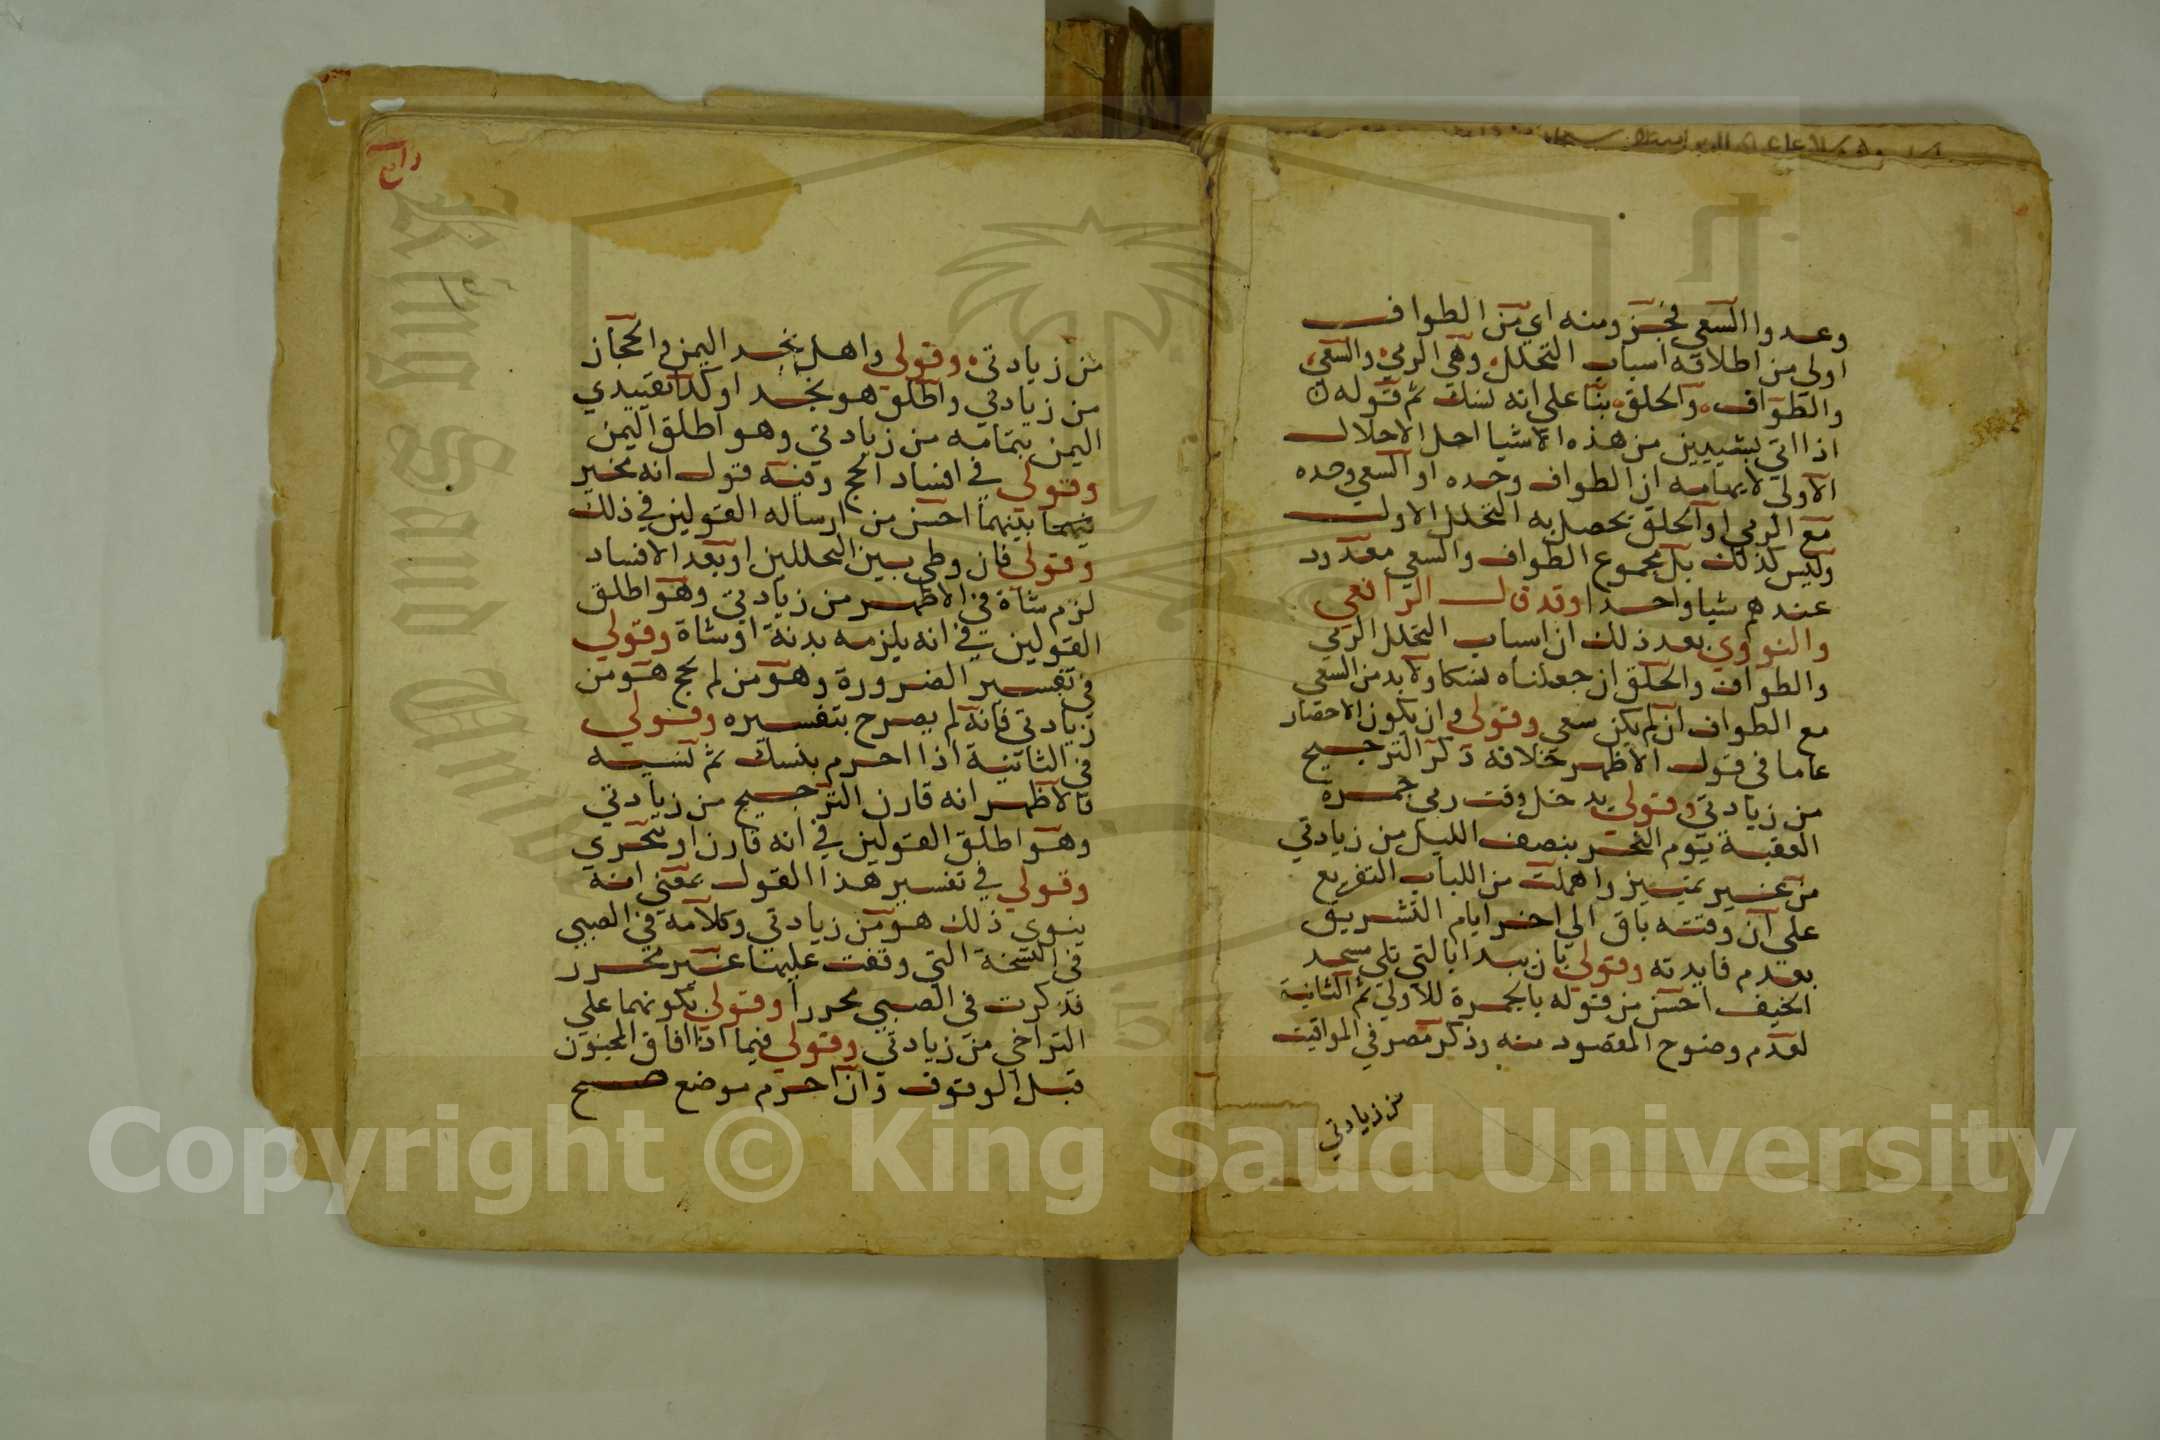 وعدوا السعي فجز ومنه اي من الطواف
اولي من اطلاقه اسباب التحلل وهي الرمي والسعي
والطواف والحلق بنا على انه نسك ثم قوله
اذا اتي بشييين من هذه الاشيا احل الاحلال
الاولي لايهامه ان الطواف وحده او السعي وحده
مع الرمي او الحلق يحصل به التحلل الاول
وليس كذلك بل مجموع الطواف والسعي معدود
عندهم شيا واحدا وقد قال الرافعي
والنووي بعد ذلك ان اسباب التحلل الرمي
والطواف والحلق ان جعلناه نسكا ولا بد من السعي
مع الطواف ان لم يكن سعي وقولي وان يكون الاحصار
عاما في قول الاظهر خلافه ذكر الترجيح
من زيادتي وقولي يدخل وقت رمي جمرة
العقبة يوم النحر بنصف الليل من زيادتي
من غير تمييز واهملت من اللباب التفريع
علي ان وقته باق الي اخر ايام التشريق
بعدم فايدته وقولي بان يبدا بالتي تلي مسجد
الخيف احسن من قوله بالجمرة للاولي ثم الثانية
لعدم وضوح المقصود منه وذكر مصر في المواقيت
من زيادتي
من زيادتي وقولي واهل نجد اليمن والحجاز
من زيادتي واطلق هو نجد او كذا تقييدي
اليمن بتمامه من زيادتي وهو اطلق اليمن
وقولي في افساد الحج وفيه قول انه مخير
بينهما احسن من ارساله القولين في ذلك
وقولي فان وطي بين التحللين او بعد الافساد
لزم شاة في الاظهر من زيادتي وهو اطلق
القولين في انه يلزمه بدنة او شاة وقولي
في تفسير الضرورة وهو من لم يحج هو من
زيادتي فانه لم يصرح بتفسيره وقولي
في الثانية اذا احرم بنسك ثم نسيه
فالاظهر انه قارن الترجيح من زيادتي
وهو اطلق القولين في انه قارن او يتحري
وقولي في تفسير هذا القول بمعني انه
ينوي ذلك هو من زيادتي وكلامه في الصبي
في النسخة التي وقفت عليها غير محرر
فذكرت في الصبي محررا وقولي بكونهما علي
التراخي من زيادتي وقولي فيما اذا افاق المجنون
قبل الوقوف وان احرم موضع صح
رابع
Copyright © King Saud University
King Saud University
1957